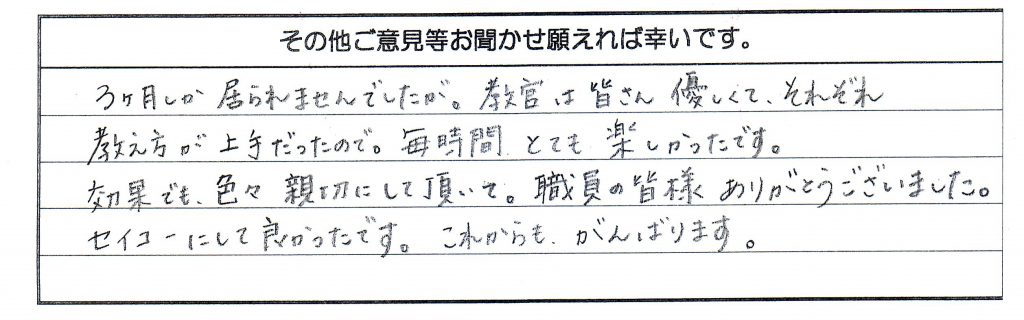 その他ご意見等お聞かせ願えれば幸いです。
3ヶ月しか居られませんでしたが。教官は皆さん優しくて、それぞれ
教え方が上手だったので。毎時間とても楽しかったです。
効果でも、色々親切にして頂いて。職員の皆様ありがとうございました。
セイコーにして良かったです。これからも、がんばります。